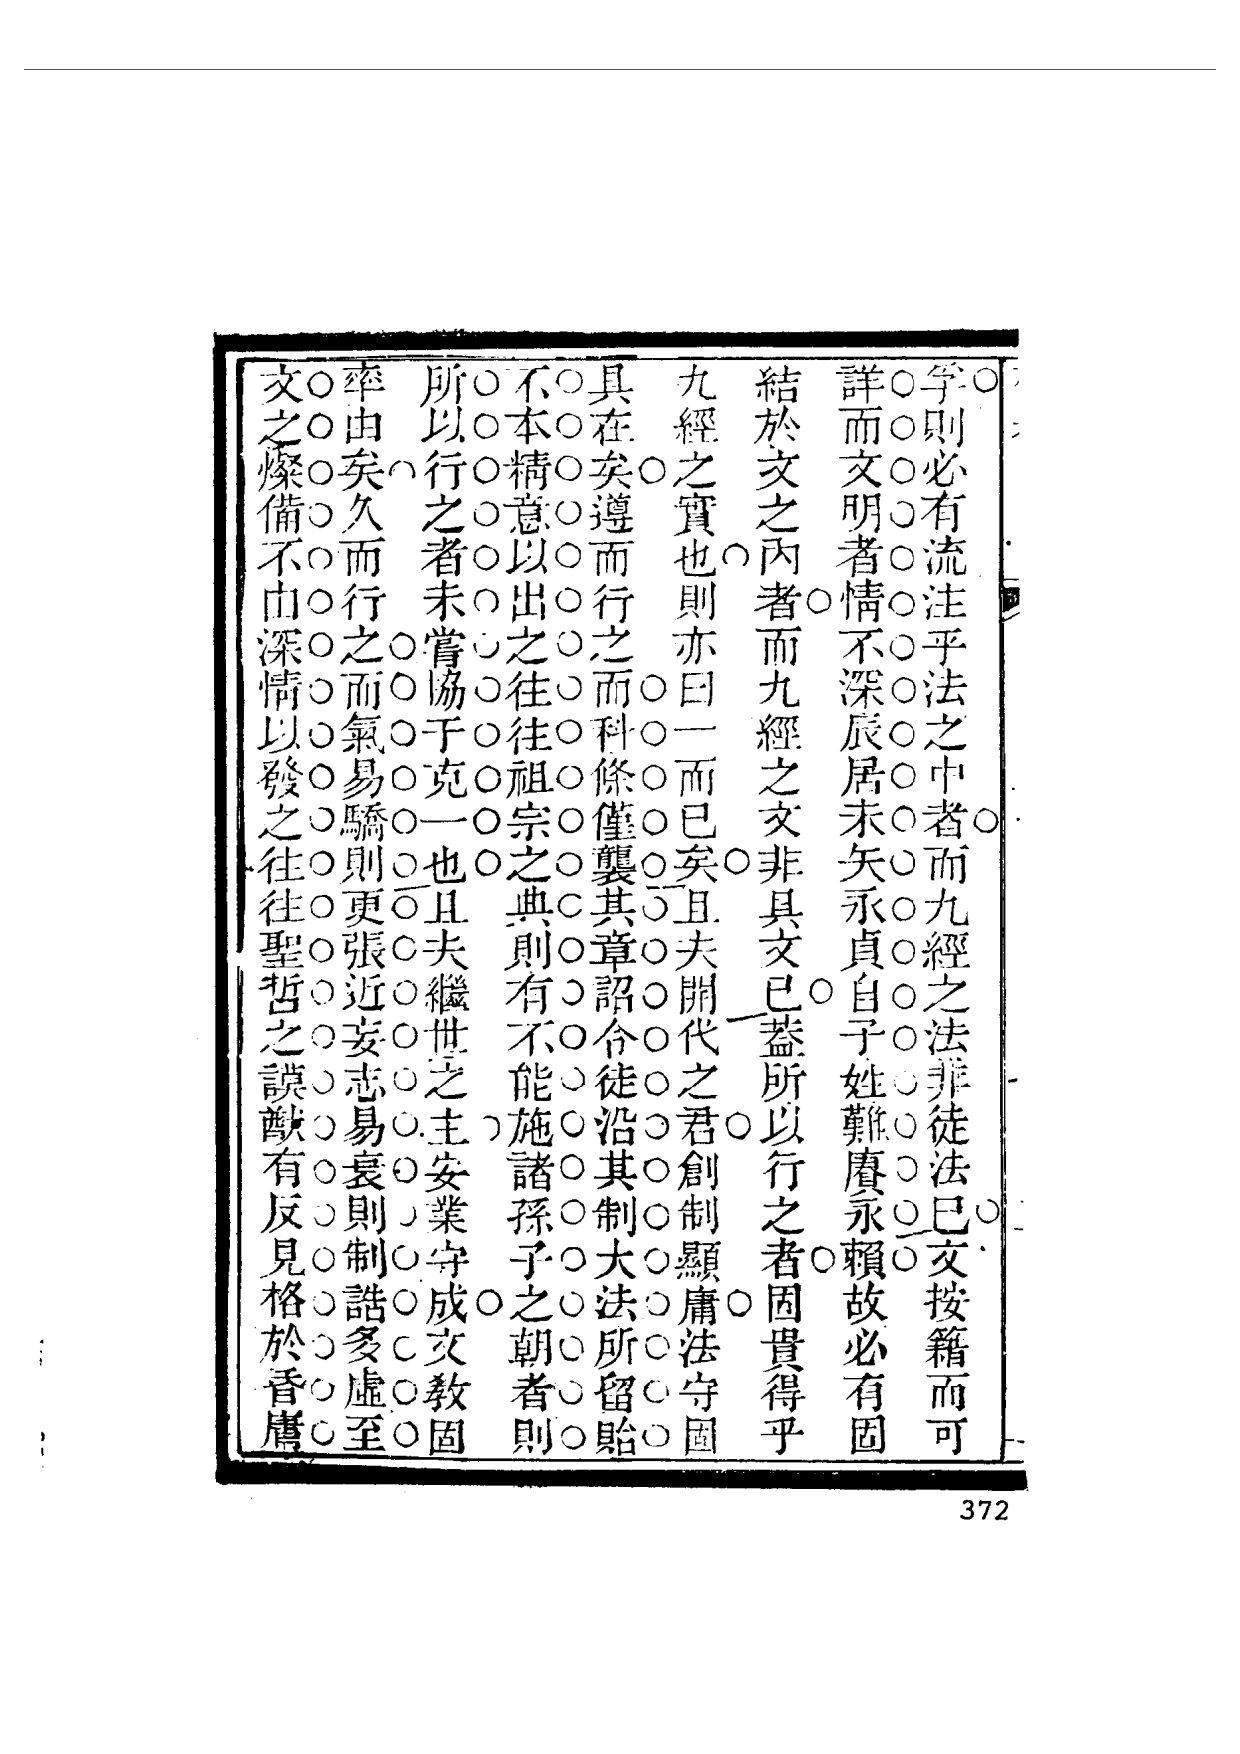 孚則必有流注乎法之中者而九經之法非徒法巳文按籍而可
詳而文明者情不深辰居未矢永貞自子姓難賡永賴故必有固
結於文之內者而九經之文非具文已蓋所以行之者固貴得乎
九經之實也則亦曰一而已矣且夫開代之君創制顯庸法守固
具在矣遵而行之而科條僅襲其章詔令徒沿其制大法所留貽
不本精意以出之往往祖宗之典則有不能施諸孫子之朝者則
所以行之者未嘗協于克一也且夫繼世之主安業守成文教固
率由矣久而行之而氣易驕則更張近妄志易衰則制誥多虛至
文之燦備不由深情以發之往往聖哲之謨猷有反見格於昏庸
372